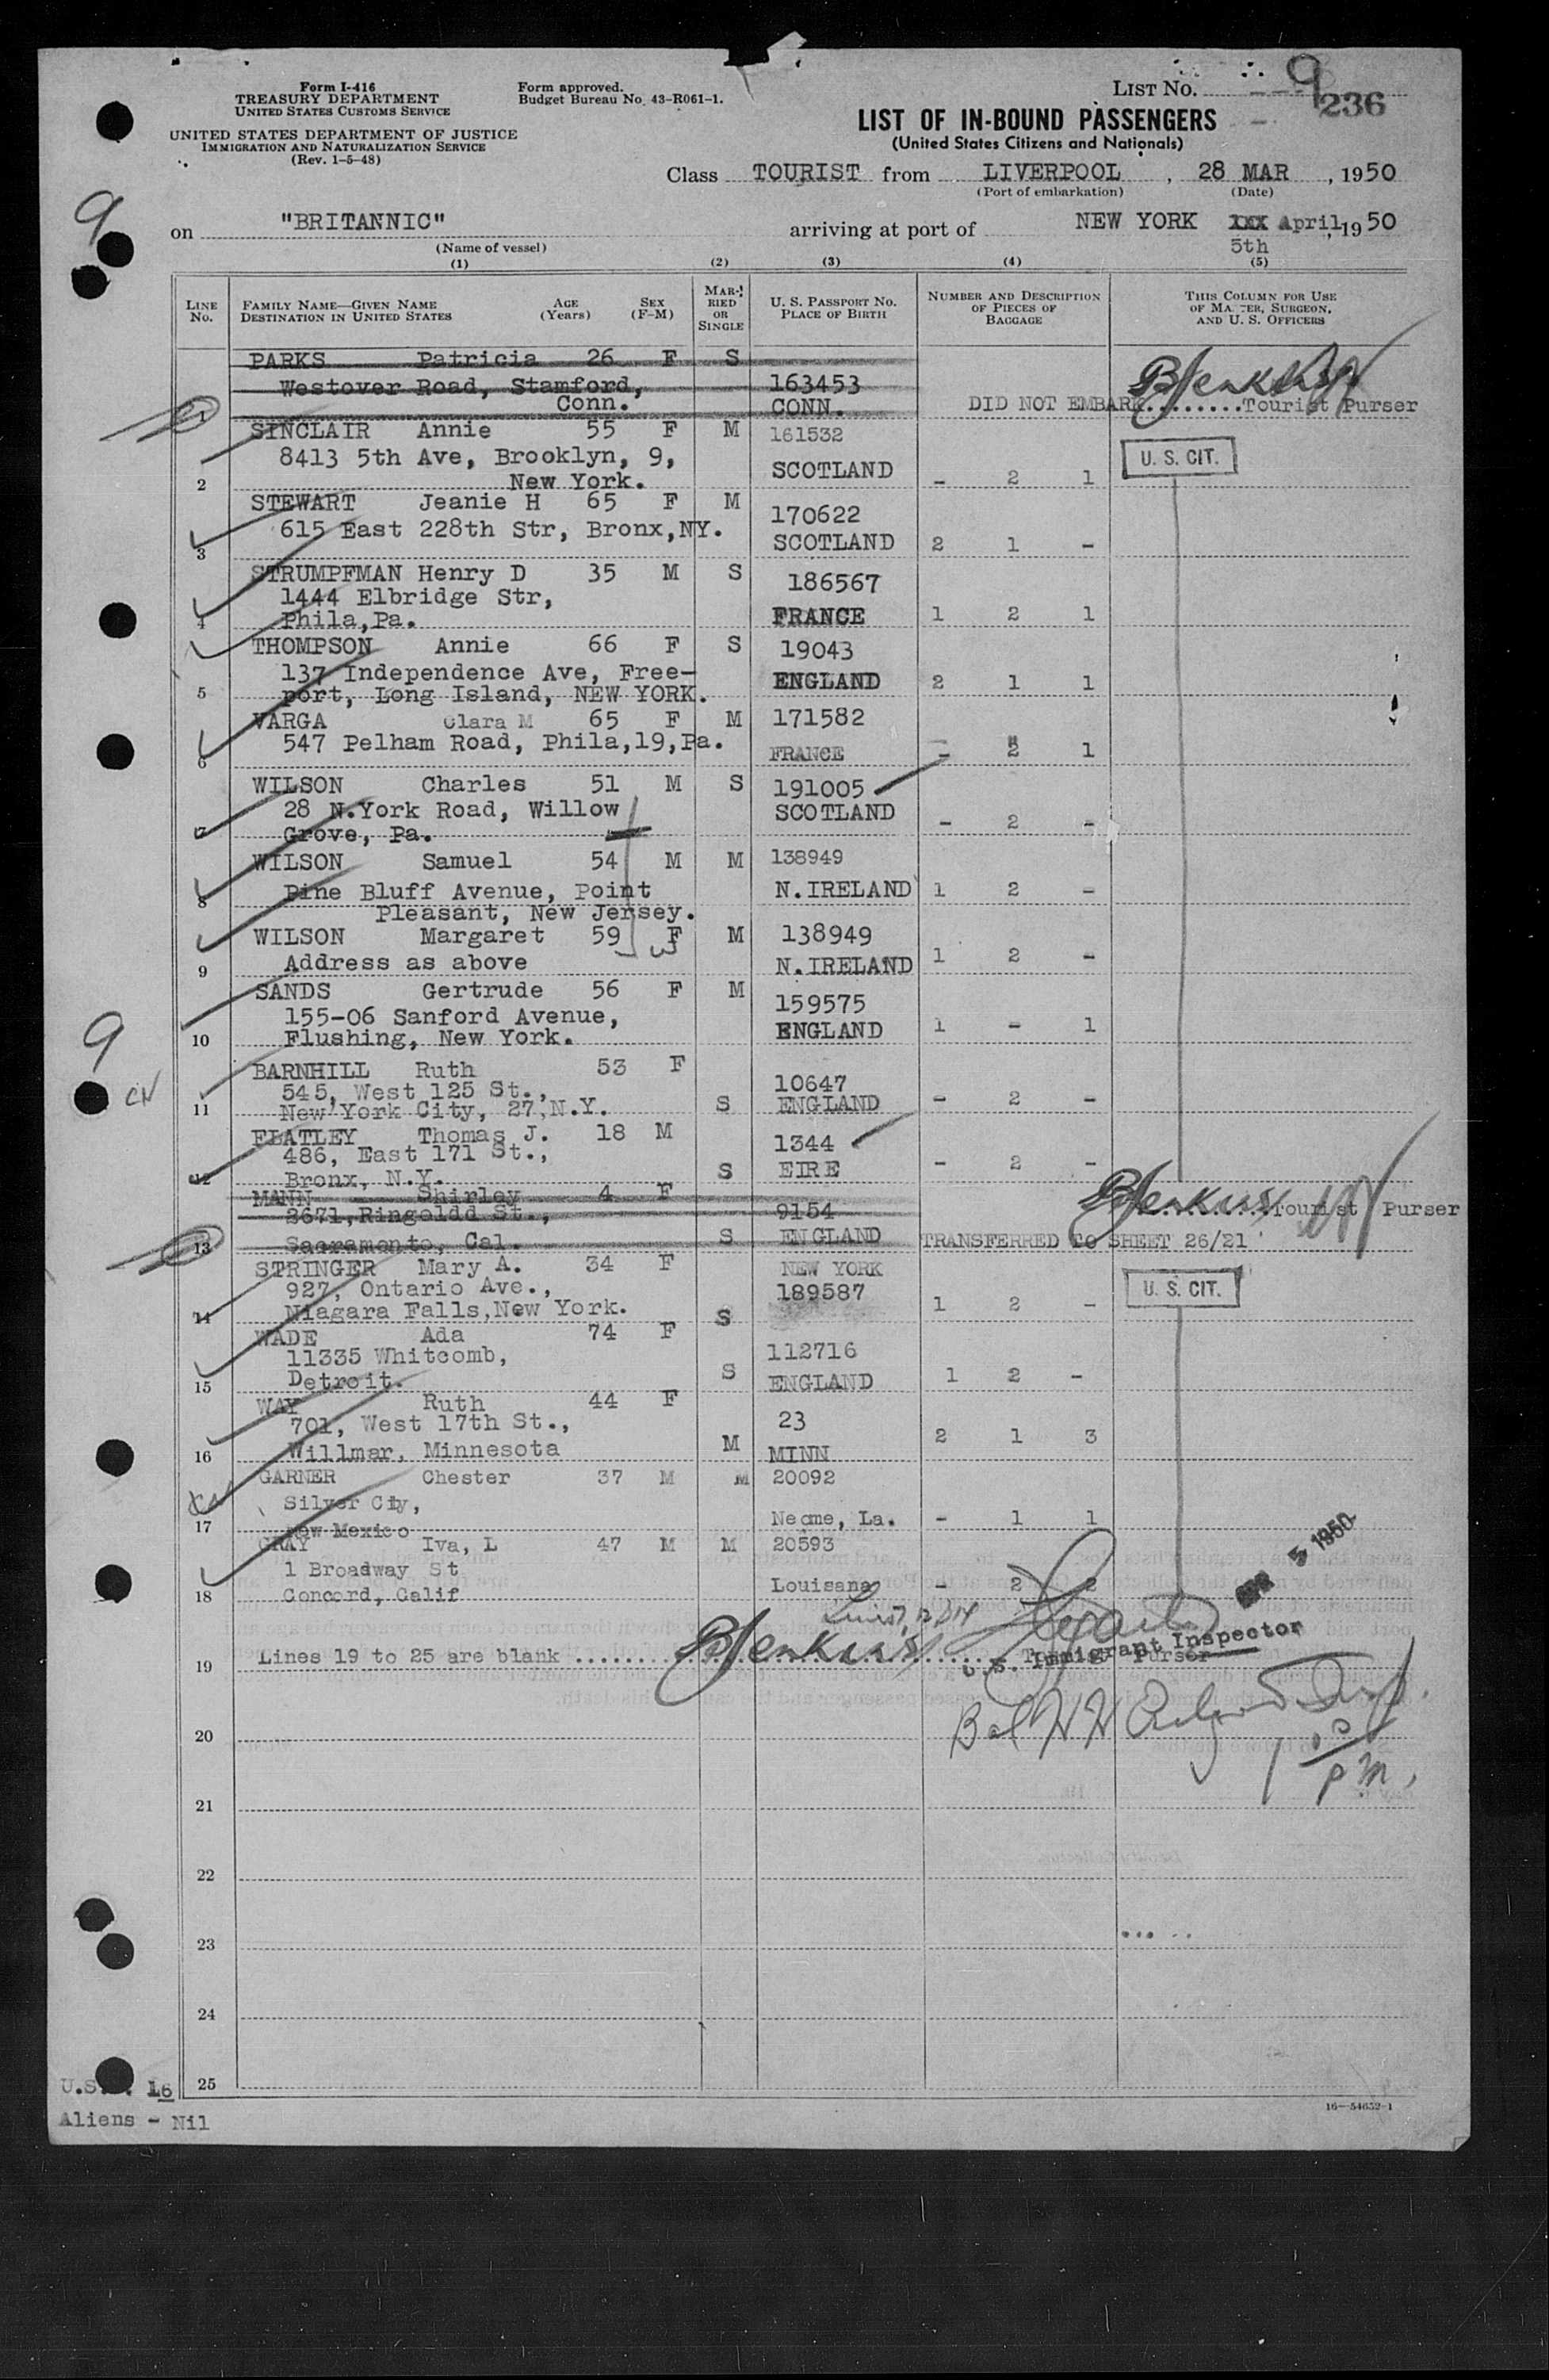 Form I-416
TREASURY DEPARTMENT
UNITED STATES CUSTOMS SERVICE
UNITED STATES DEPARTMENT OF JUSTICE
IMMIGRATION AND NATURALIZATION SERVICE
(Rev. 1-5-48)
Form approved.
Budget Bureau No. 43-R061-1.
LIST No. 9
236
LIST OF IN-BOUND PASSENGERS
(United States Citizens and Nationals)
Class TOURIST from LIVERPOOL, 28 MAR, 1950
(Port of embarkation) (Date)
9
on "BRITANNIC" arriving at port of NEW YORK xxx April, 1950
5th
(Name of vessel)
(1) (2) (3) (4) (5)
LINE No.
FAMILY NAME—GIVEN NAME AGE (Years) SEX (F-M)
DESTINATION IN UNITED STATES
MARRIED OR SINGLE
U. S. PASSPORT NO.
PLACE OF BIRTH
NUMBER AND DESCRIPTION OF PIECES OF BAGGAGE
THIS COLUMN FOR USE OF MASTER, SURGEON, AND U. S. OFFICERS
PARKS Patricia 26 F S
Westover Road, Stamford, 163453
Conn. CONN. DID NOT EMBARK.........Tourist Purser
BJenkins
SINCLAIR Annie 55 F M 161532
8413 5th Ave, Brooklyn, 9, SCOTLAND U. S. CIT.
2 New York. - 2 1
STEWART Jeanie H 65 F M 170622
615 East 228th Str, Bronx,NY.
3 SCOTLAND 2 1 -
STRUMPFMAN Henry D 35 M S 186567
1444 Elbridge Str,
4 Phila,Pa. FRANCE 1 2 1
THOMPSON Annie 66 F S 19043
137 Independence Ave, Free-
5 port, Long Island, NEW YORK. ENGLAND 2 1 1
VARGA Clara M 65 F M 171582
547 Pelham Road, Phila,19,Pa.
6 FRANCE - 2 1
WILSON Charles 51 M S 191005
28 N.York Road, Willow SCOTLAND
7 Grove, Pa. - 2 -
WILSON Samuel 54 M M 138949
8 Pine Bluff Avenue, Point N.IRELAND 1 2 -
Pleasant, New Jersey.
WILSON Margaret 59 F M 138949
9 Address as above N.IRELAND 1 2 -
SANDS Gertrude 56 F M 159575
155-06 Sanford Avenue,
10 Flushing, New York. ENGLAND 1 - 1
9
CN
BARNHILL Ruth 53 F 10647
545, West 125 St.,
11 New York City, 27,N.Y. S ENGLAND - 2 -
FLATLEY Thomas J. 18 M 1344
486, East 171 St.,
12 Bronx, N.Y. S EIRE - 2 -
MANN Shirley 4 F
2671,Ringoldd St., 9154 BJenkins ..........Tourist Purser
13 Sacramento, Cal. S ENGLAND TRANSFERRED TO SHEET 26/21
STRINGER Mary A. 34 F NEW YORK
927, Ontario Ave., 189587 U. S. CIT.
14 Niagara Falls,New York. S 1 2 -
WADE Ada 74 F
11335 Whitcomb, 112716
15 Detroit. S ENGLAND 1 2 -
WAY Ruth 44 F
701, West 17th St., 23
16 Willmar, Minnesota M MINN 2 1 3
GARNER Chester 37 M M 20092
Silver City,
17 New Mexico Necme, La. - 1 1
GRAY Iva, L 47 M M 20593
1 Broadway St
18 Concord, Calif Louisana - 2 2
APR 5 1950
19 Lines 19 to 25 are blank .......... BJenkins .......... Purser
U.S. Immigrant Inspector
20
1 P.M.
21
22
23
24
25
U.S. 16
Aliens - Nil
16—54652-1